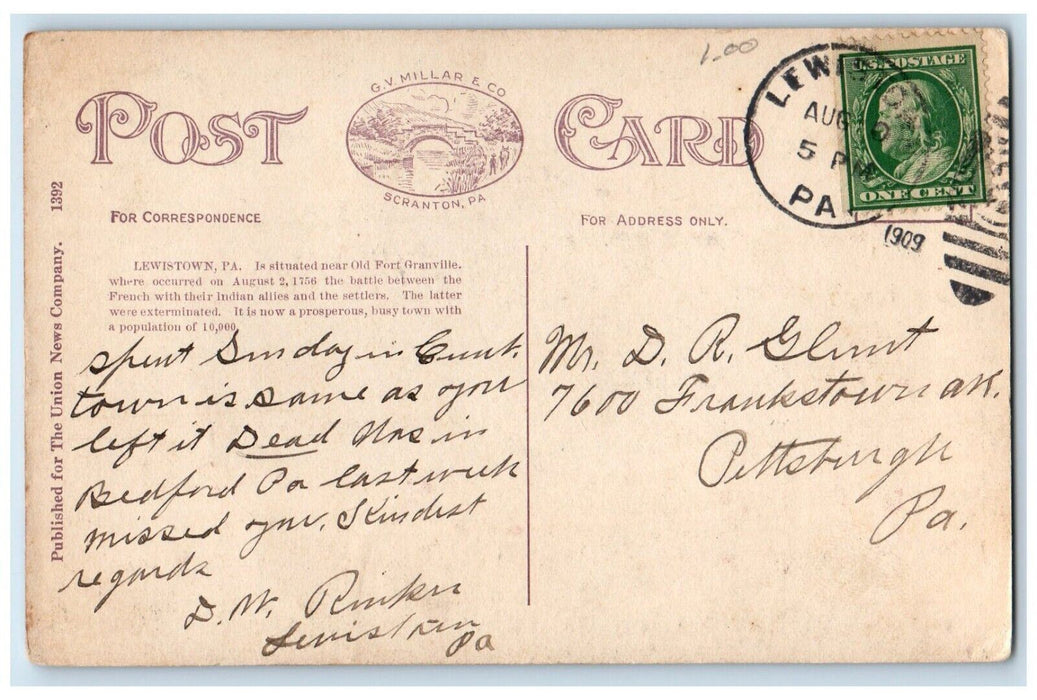 1.00
POST CARD
G.V. MILLAR & CO
SCRANTON, PA
LEWISTOWN
AUG
5 PM
PA
1909
U.S. POSTAGE
ONE CENT
FOR CORRESPONDENCE
FOR ADDRESS ONLY.
Published for The Union News Company. 1392
LEWISTOWN, PA. Is situated near Old Fort Granville.
where occurred on August 2, 1756 the battle between the
French with their Indian allies and the settlers. The latter
were exterminated. It is now a prosperous, busy town with
a population of 10,000.
spent Sunday in
town is same as you
left it Dead Was in
Bedford Pa last week
missed you. Kindest
regards
D. W.
Lewistown
Pa
Mr. D. R. Glunt
7600 Frankstown av.
Pittsburgh
Pa.